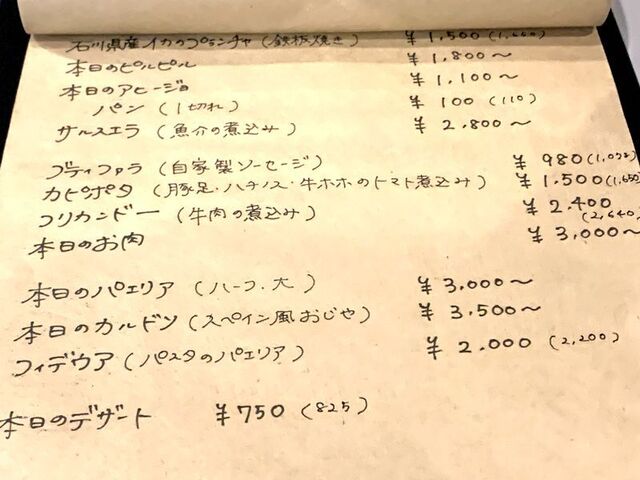 石川県産イカのプランチャ(鉄板焼き) ¥1,500(1,650)
本日のピルピル ¥1,800〜
本日のアヒージョ ¥1,100〜
パン(1切れ) ¥100(110)
サルスエラ(魚介の煮込み) ¥2,800〜
ブティファラ(自家製ソーセージ) ¥980(1,078)
カピポタ(豚足・ハチノス・牛ホホのトマト煮込み) ¥1,500(1,650)
フリカンドー(牛肉の煮込み) ¥2,400(2,640)
本日のお肉 ¥3,000〜
本日のパエリア(ハーフ.大) ¥3,000〜
本日のカルドソ(スペイン風おじや) ¥3,500〜
フィデウア(パスタのパエリア) ¥2.000(2,200)
本日のデザート ¥750(825)